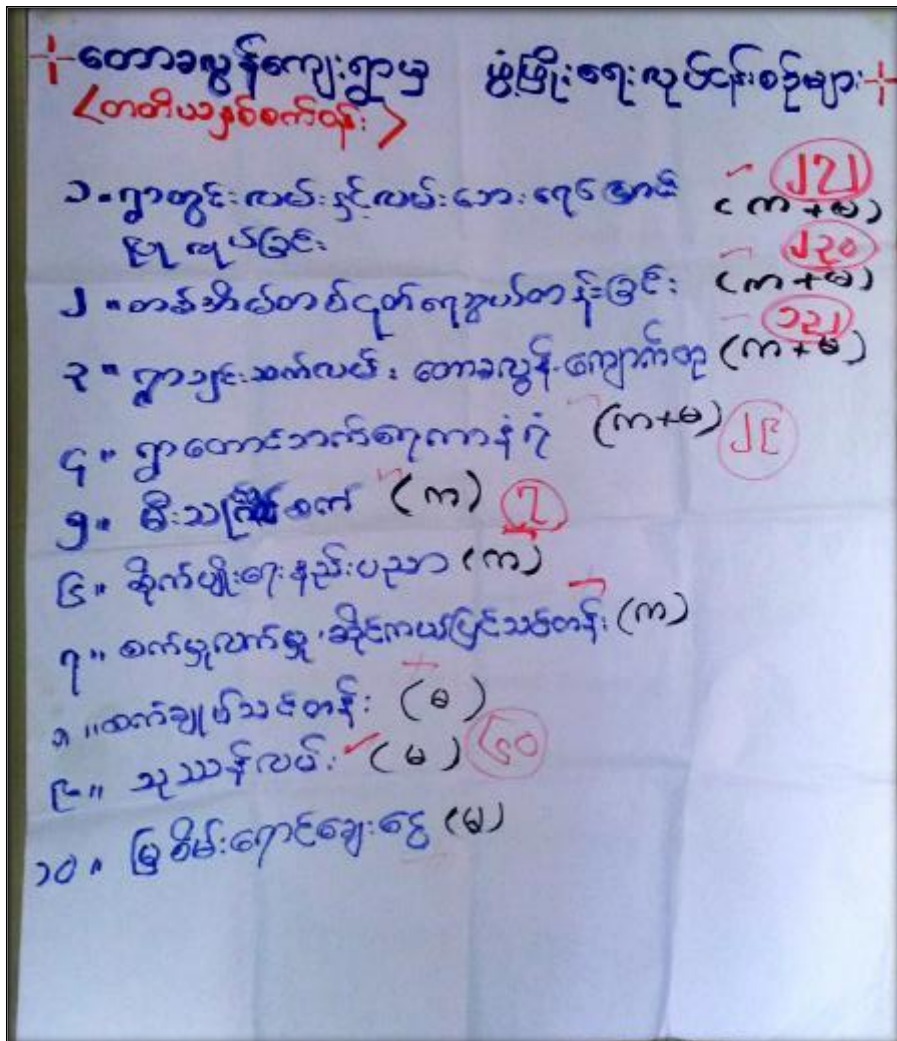 တောခလွန်ကျေးရွာမှ ဖွံ့ဖြိုးရေးလုပ်ငန်းစဉ်များ
<တတိယနှစ်စက်ဝန်း>
၁။ ရွာတွင်းလမ်းနှင့်လမ်းဘေးရေမြောင်း (က+မ) ၂၇၂
ပြုလုပ်ခြင်း
၂။ တစ်အိမ်တစ်ငုတ်ရေသွယ်တန်းခြင်း (က+မ) ၂၃၀
၃။ ရွာချင်းဆက်လမ်း၊ တောခလွန်-ကျောက်တု (က+မ) ၁၃၂
၄။ ရွာတောင်ဘက်ရေကာနံရံ (က+မ) ၂၉
၅။ မီးသ စက် (က) ၇
၆။ စိုက်ပျိုးရေးနည်းပညာ (က)
၇။ စက်မှုလက်မှု၊ ဆိုင်ကယ်ပြင်သင်တန်း (က)
၈။ စက်ချုပ်သင်တန်း (မ)
၉။ သုဿန်လမ်း (မ) ၆၀
၁၀။ မြစိမ်းရောင်ချေးငွေ (မ)